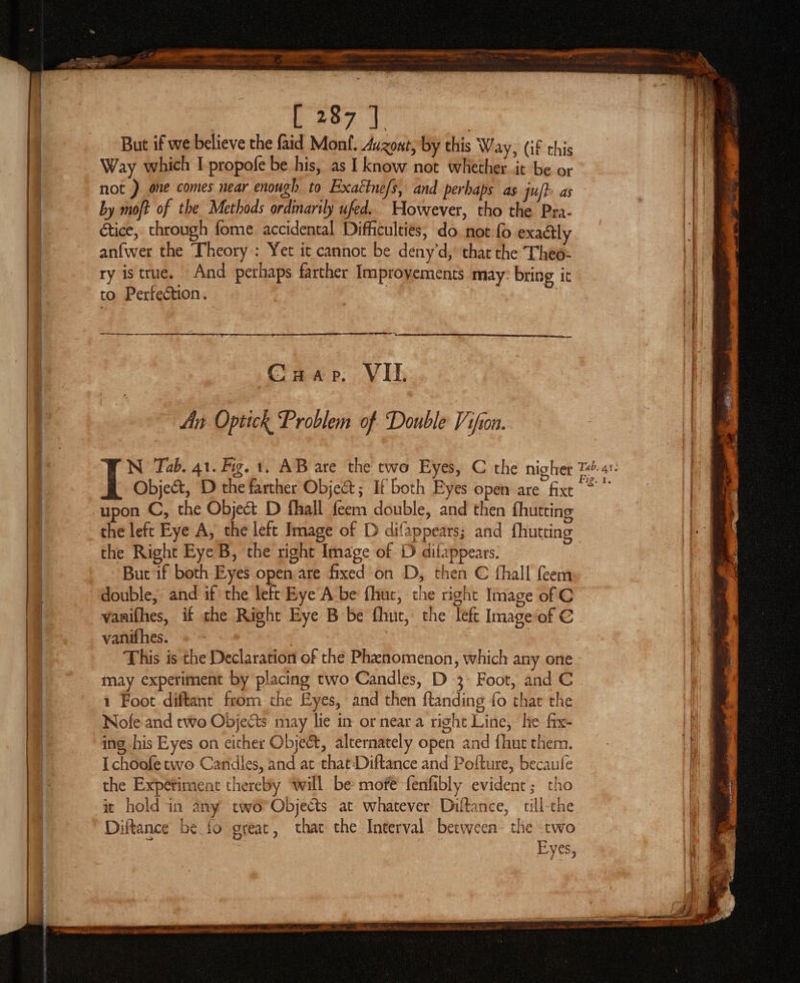 [ 287 ]
But if we believe the ſaid Monſ. Auzout, by this Way, (if this
Way which I propoſe be his, as I know not whether it be or
not ) one comes near enough to Exactneſs, and perhaps as juſt as
by moſt of the Methods ordinarily uſed. However, tho the Pra-
ctice, through ſome accidental Difficulties, do not ſo exactly
anſwer the Theory : Yet it cannot be deny'd, that the Theo-
ry is true. And perhaps farther Improvements may bring it
to Perfection.
CHAP. VII.
An Optick Problem of Double Viſion.
IN Tab. 41. Fig. 1. AB are the two Eyes, C the nigher Tab. 41.
Object, D the farther Object; If both Eyes open are fixt Fig. 1.
upon C, the Object D ſhall ſeem double, and then ſhutting
the left Eye A, the left Image of D diſappears; and ſhutting
the Right Eye B, the right Image of D diſappears.
But if both Eyes open are fixed on D, then C ſhall ſeem
double, and if the left Eye A be ſhut, the right Image of C
vaniſhes, if the Right Eye B be ſhut, the left Image of C
vaniſhes.
This is the Declaration of the Phænomenon, which any one
may experiment by placing two Candles, D 3 Foot, and C
1 Foot diſtant from the Eyes, and then ſtanding ſo that the
Noſe and two Objects may lie in or near a right Line, he fix-
ing his Eyes on either Object, alternately open and ſhut them.
I chooſe two Candles, and at that Diſtance and Poſture, becauſe
the Experiment thereby will be more ſenſibly evident; tho
it hold in any two Objects at whatever Diſtance, till the
Diſtance be ſo great, that the Interval between the two
Eyes,